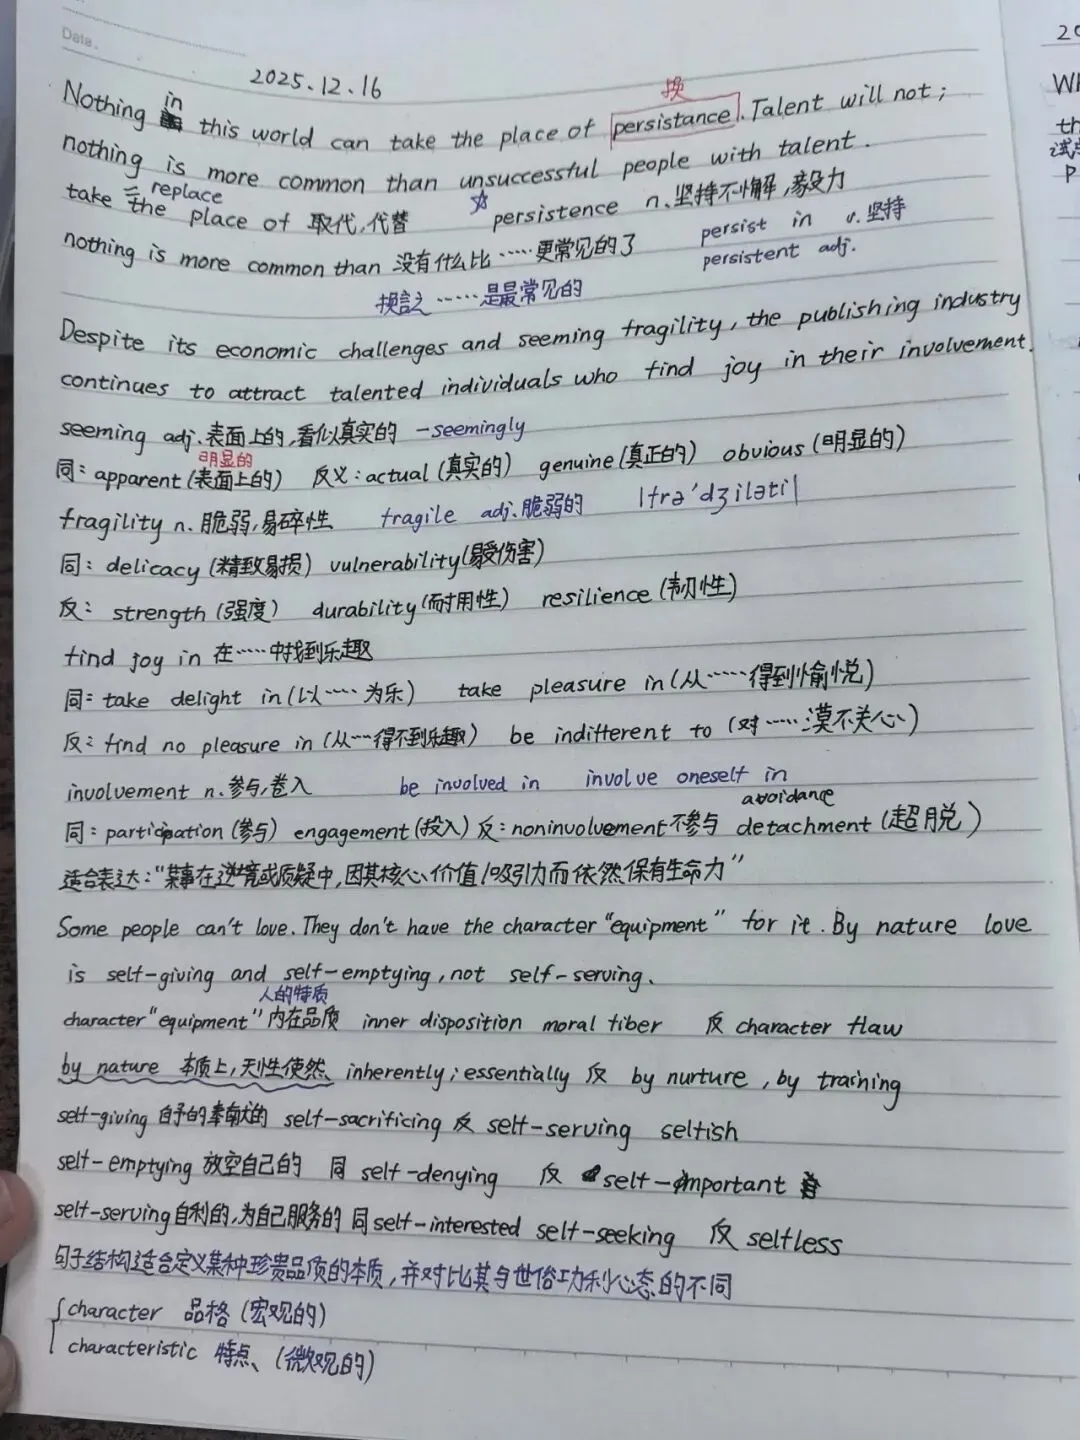 Date.
2025.12.16
Nothing in this world can take the place of persistance. Talent will not;
损
nothing is more common than unsuccessful people with talent.
take the place of 取代,代替
= replace
☆ persistence n.坚持不懈,毅力
persist in v.坚持
persistent adj.
nothing is more common than 没有什么比……更常见的了
换言之……是最常见的
Despite its economic challenges and seeming fragility, the publishing industry
continues to attract talented individuals who find joy in their involvement.
seeming adj.表面上的,看似真实的 -seemingly
明显的
同: apparent (表面上的) 反义: actual (真实的) genuine (真正的) obvious (明显的)
fragility n. 脆弱,易碎性 fragile adj.脆弱的 |frə'dʒiləti|
同: delicacy (精致易损) vulnerability (易受伤害)
反: strength (强度) durability (耐用性) resilience (韧性)
find joy in 在……中找到乐趣
同: take delight in (以……为乐) take pleasure in (从……得到愉悦)
反: find no pleasure in (从……得不到乐趣) be indifferent to (对……漠不关心)
involvement n.参与,卷入 be involved in involve oneself in
avoidance
同: participation (参与) engagement (投入) 反: noninvolvement 不参与 detachment (超脱)
适合表达:“某事在逆境或质疑中,因其核心价值/吸引力而依然保有生命力”
Some people can't love. They don't have the character "equipment" for it. By nature love
is self-giving and self-emptying, not self-serving.
人的特质
character "equipment" 内在品质 inner disposition moral fiber 反 character flaw
by nature 本质上,天性使然 inherently; essentially 反 by nurture, by training
self-giving 自予的奉献的 self-sacrificing 反 self-serving selfish
self-emptying 放空自己的 同 self-denying 反 self-important
self-serving 自利的,为自己服务的 同 self-interested self-seeking 反 selfless
句子结构适合定义某种珍贵品质的本质,并对比其与世俗功利心态的不同
character 品格 (宏观的)
characteristic 特点、(微观的)
20
Wh
th
试点
P